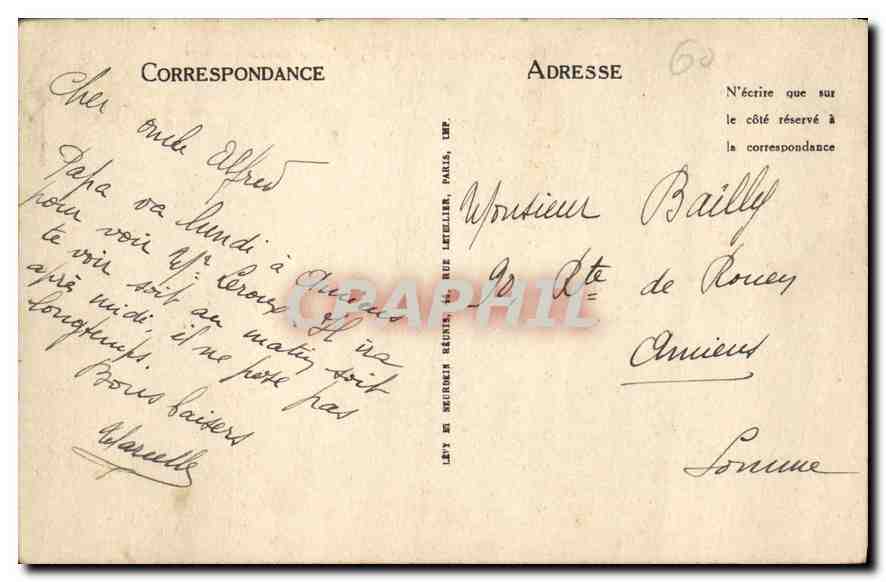 CORRESPONDANCE
Cher oncle Alfred
Papa va lundi à Amiens
pour voir Mr Leroux. Il ira
te voir soit au matin soit
après midi, il ne pose pas
longtemps.
Bons baisers
Marcelle
LÉVY ET NEURDEIN RÉUNIS, 44 RUE LETELLIER, PARIS, IMP.
ADRESSE
60
N'écrire que sur
le côté réservé à
la correspondance
Monsieur Bailly
90 Rte de Rouen
Amiens
Somme
CPAPHIL